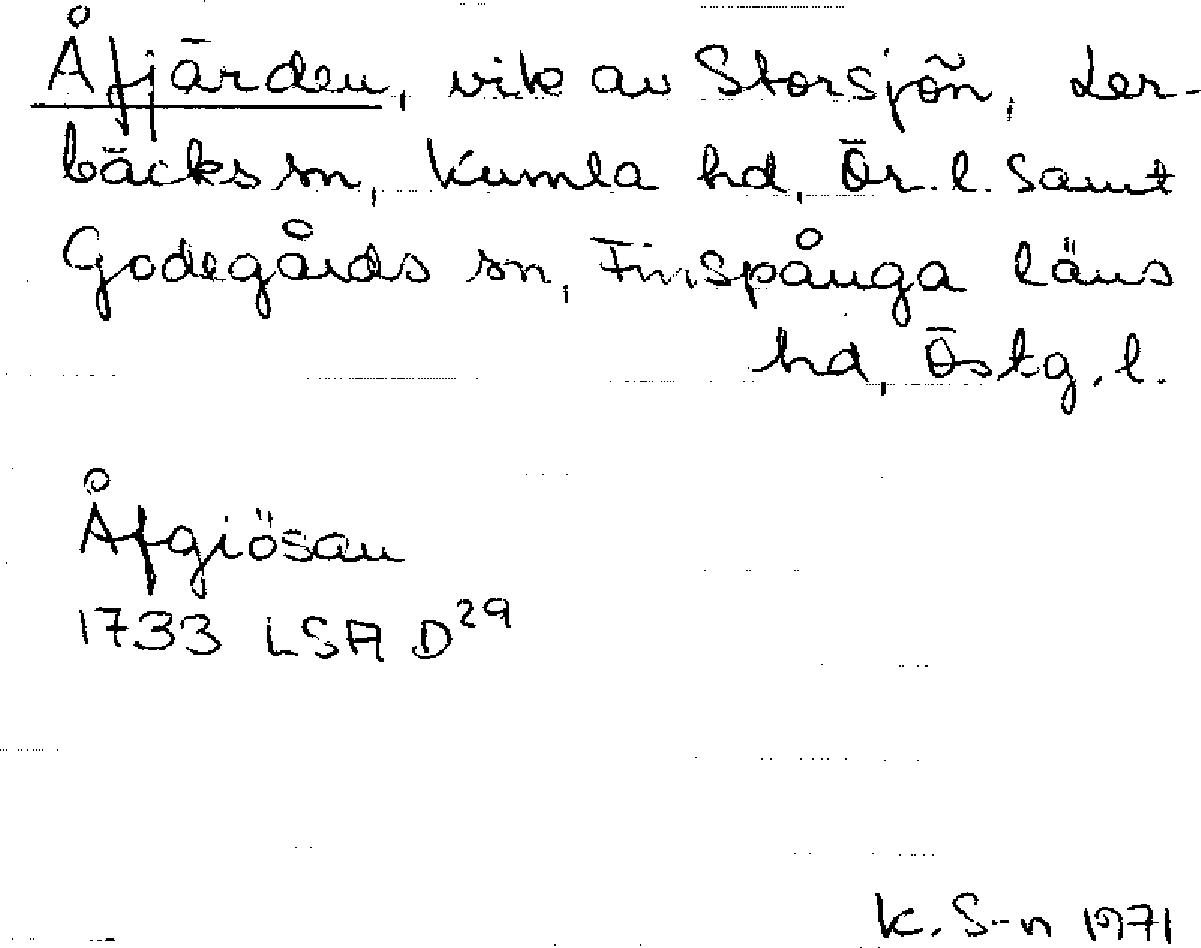 Åfjärden, vik av Storsjön, Ler-
bäcks sn, Kumla hd, Ör. l. samt
Godegårds sn, Finspånga läns
hd, Östg. l.
Åfgiösan
1733 LSA D29
K. S-n 1971